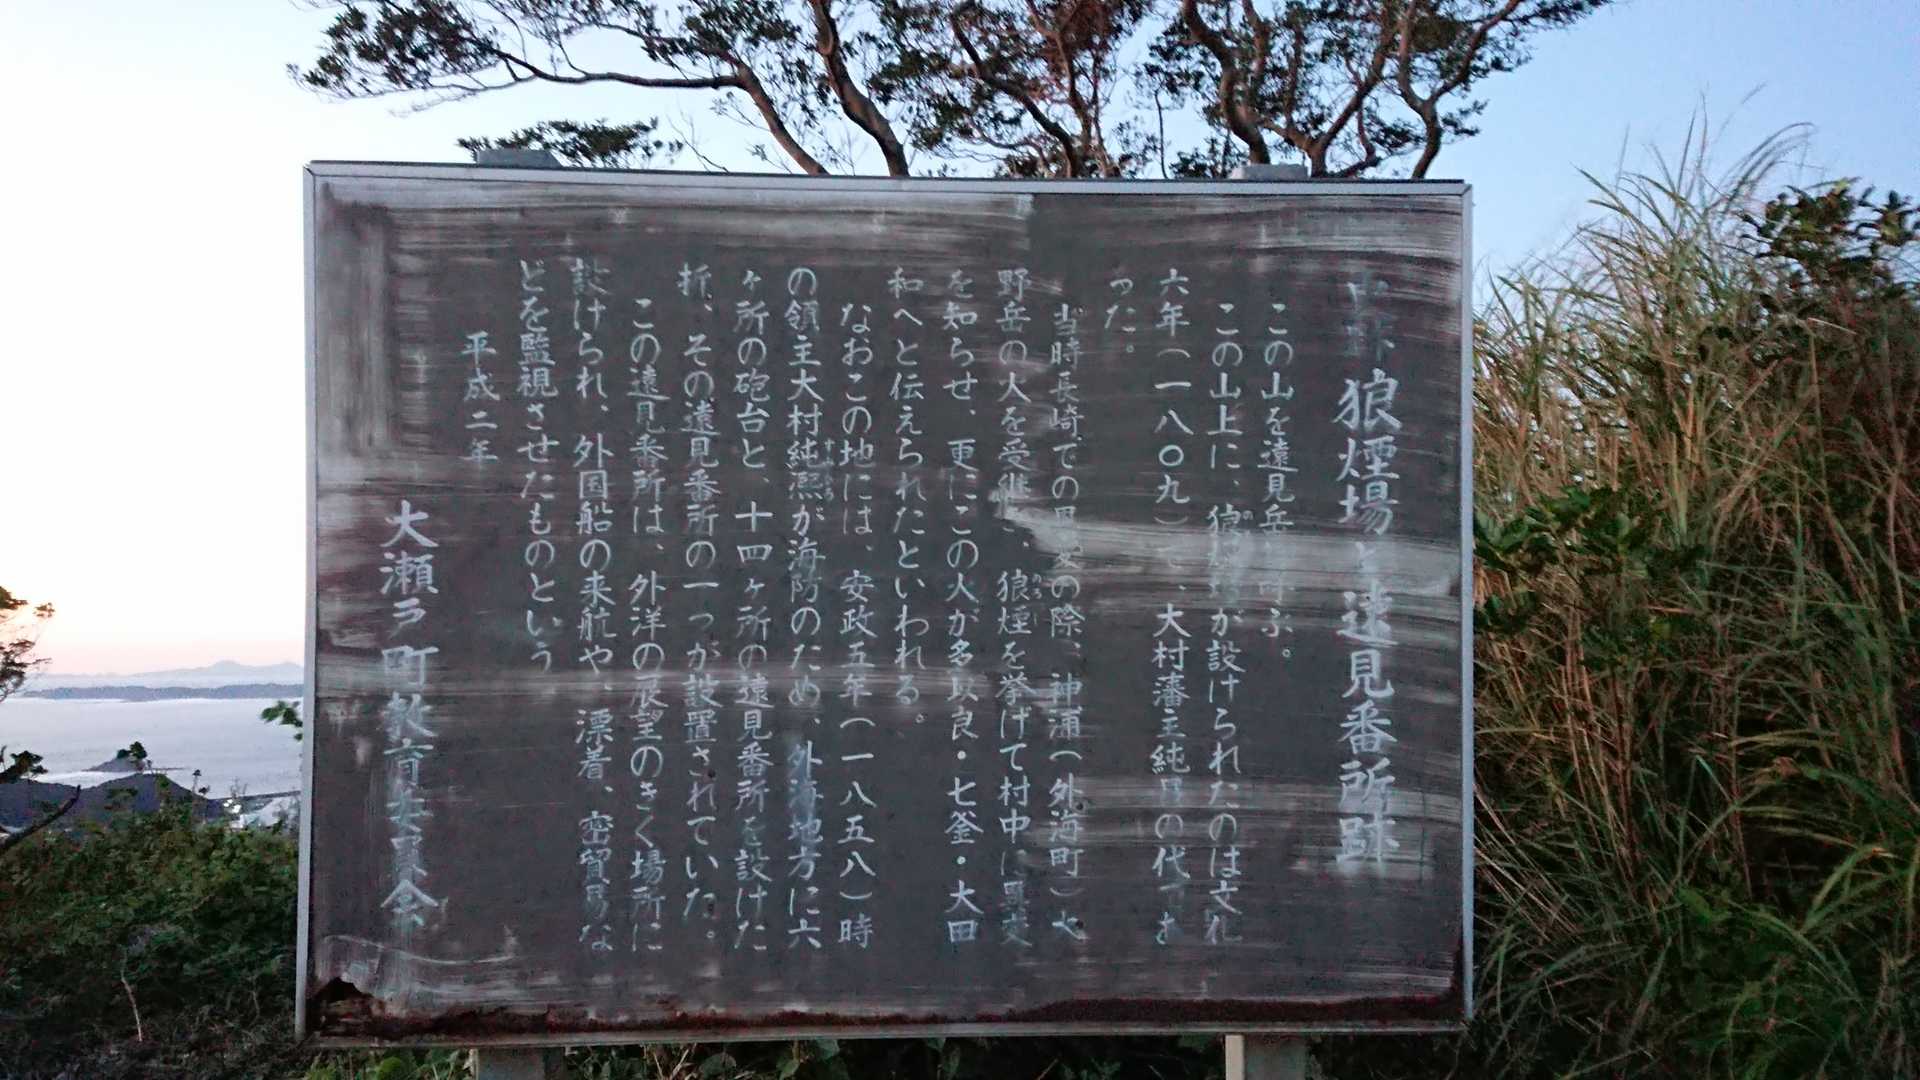 史跡 狼煙場と遠見番所跡
この山を遠見岳と呼ぶ。
この山上に、狼煙場が設けられたのは文化
六年(一八〇九)で、大村藩主純昌の代であ
った。
当時長崎での異変の際、神浦(外海町)大
野岳の火を受継ぎ、狼煙を挙げて村中に異変
を知らせ、更にこの火が多以良・七釜・大田
和へと伝えられたといわれる。
なおこの地には、安政五年(一八五八)時
の領主大村純熈が海防のため、外海地方に六
ヶ所の砲台と、十四ヶ所の遠見番所を設けた
折、その遠見番所の一つが設置されていた。
この遠見番所は、外洋の展望のきく場所に
設けられ、外国船の来航や、漂着、密貿易な
どを監視させたものという
平成二年
大瀬戸町教育委員会